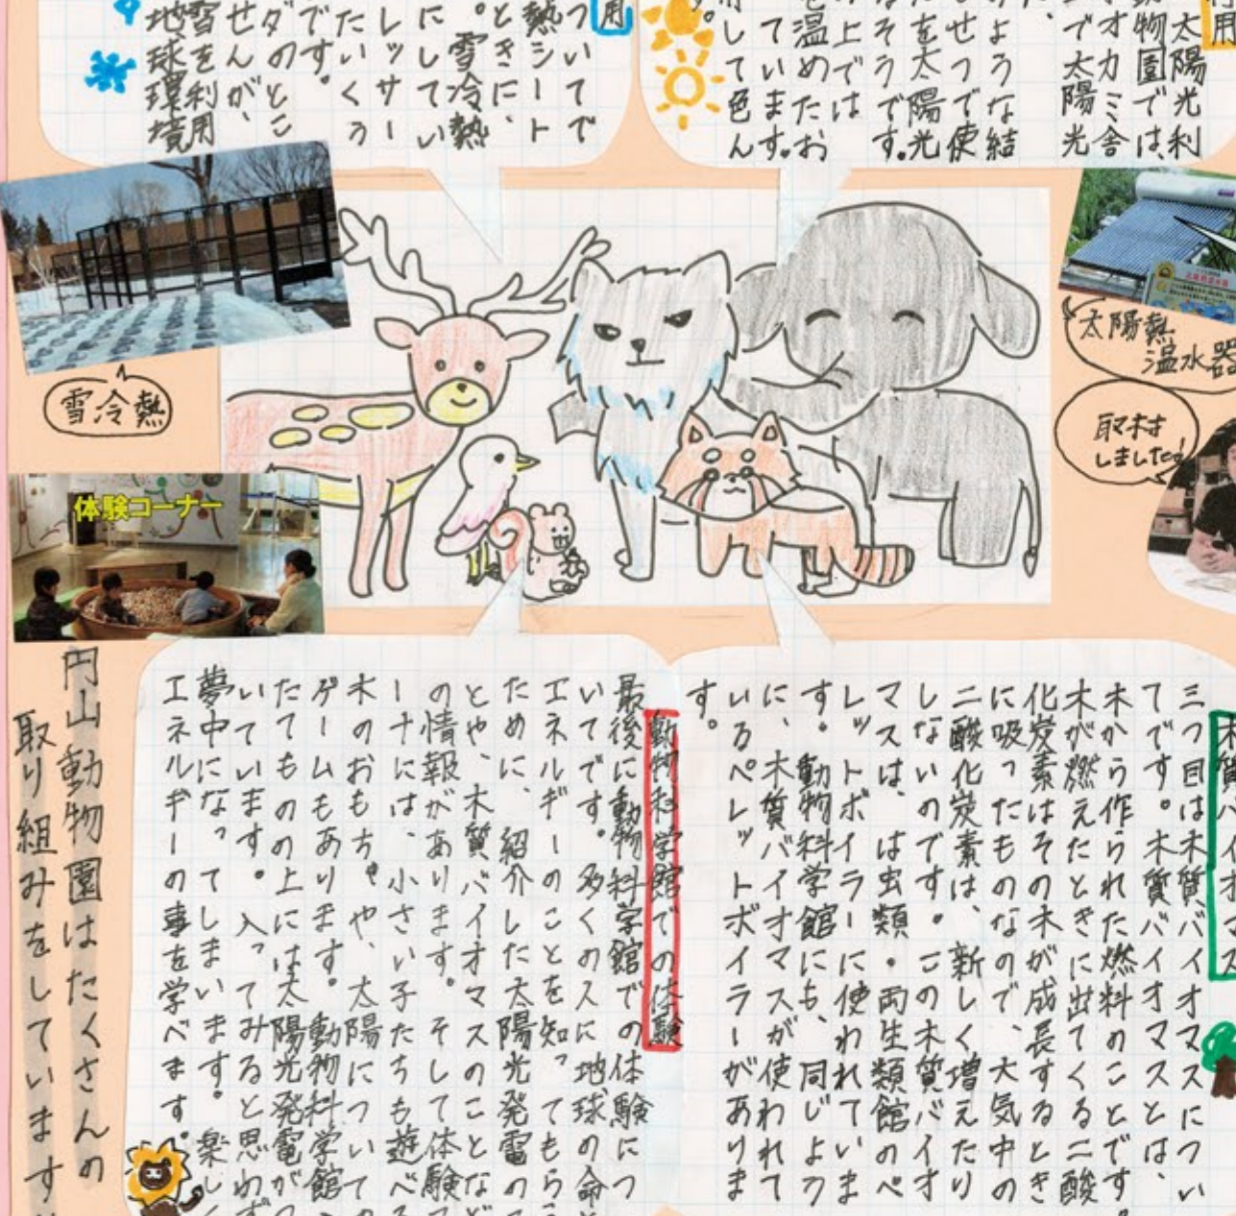 利用
太陽光利
動物園では、
オオカミ舎
で太陽光
のような結
しせつで使
たを太陽光
なそうです。
の上では
を温めたお
ています。
用して色ん
す。
用
ついてで
熱シート
ときに、
。雪冷熱
にしてい
レッサー
たいくう
です。
ダのとこ
せんが、
雪を利用
地球環境
太陽熱
温水器
取材
しました!
雪冷熱
体験コーナー
木質バイオマス
三つ目は木質バイオマスについ
てです。木質バイオマスとは、
木から作られた燃料のことです。
木が燃えたときに出てくる二酸
化炭素はその木が成長するとき
に吸ったものなので、大気中の
二酸化炭素は、新しく増えたり
しないのです。この木質バイオ
マスは、は虫類・両生類館のペ
レットボイラーに使われていま
す。動物科学館にも、同じよう
に、木質バイオマスが使われて
いるペレットボイラーがありま
す。
動物科学館での体験
最後に動物科学館での体験につ
いてです。多くの人に地球の命と
エネルギーのことを知ってもらう
ために、紹介した太陽光発電の
とや、木質バイオマスのことなど
の情報があります。そして体験コ
ーナーには、小さい子たちも遊べる
木のおもちゃや、太陽についての
ゲームもあります。動物科学館
たてものの上には太陽光発電がつ
いています。入ってみると思わず
夢中になってしまいます。楽しく
エネルギーの事を学べます。
円山動物園はたくさんの
取り組みをしています